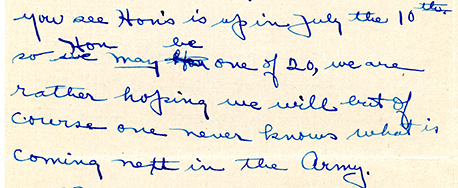 you see Hon's is up in July the 10th.
Hon be
so we may one of 20, we are
rather hoping we will but of
course one never knows what is
coming next in the Army.